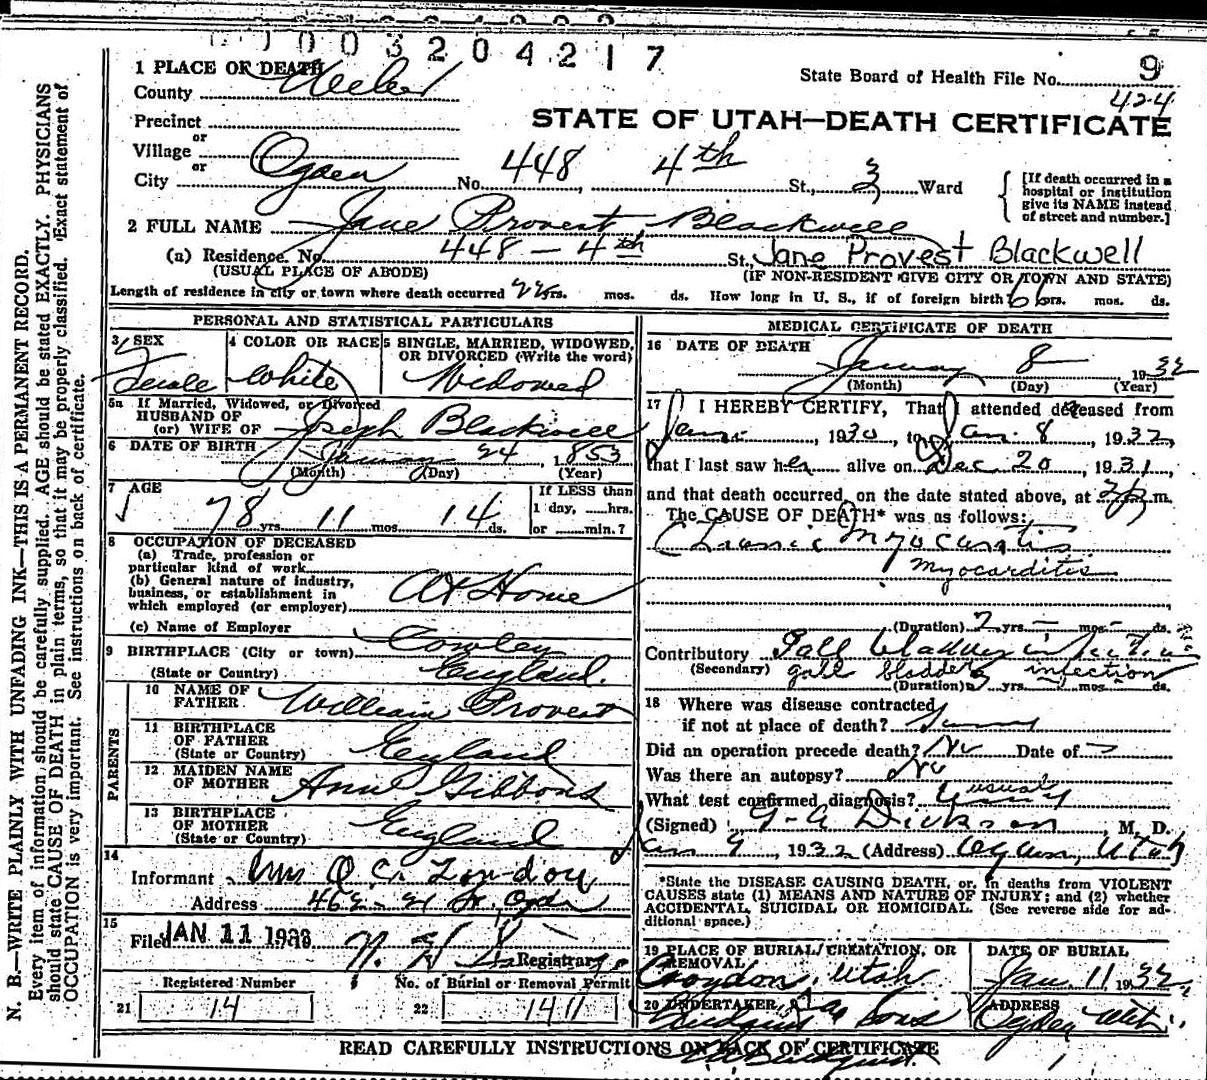 0003204217
1 PLACE OF DEATH
State Board of Health File No. 9
County Weber
424
STATE OF UTAH—DEATH CERTIFICATE
Precinct
or
Village
or
City Ogden No. 448, 4th St., 3 Ward
[If death occurred in a hospital or institution give its NAME instead of street and number.]
2 FULL NAME Jane Provest Blackwell
(a) Residence. No. 448 - 4th St. Jane Provest Blackwell
(USUAL PLACE OF ABODE) (IF NON-RESIDENT GIVE CITY OR TOWN AND STATE)
Length of residence in city or town where death occurred yrs. mos. ds. How long in U. S., if of foreign birth 66 yrs. mos. ds.
PERSONAL AND STATISTICAL PARTICULARS
3 SEX
Female
4 COLOR OR RACE
White
5 SINGLE, MARRIED, WIDOWED, OR DIVORCED (Write the word)
Widowed
5a If Married, Widowed, or Divorced
HUSBAND OF
(or) WIFE OF Joseph Blackwell
6 DATE OF BIRTH January 24, 1853
(Month) (Day) (Year)
7 AGE
78 yrs. 11 mos. 14 ds.
If LESS than
1 day, hrs.
or min.?
8 OCCUPATION OF DECEASED
(a) Trade, profession or
particular kind of work
(b) General nature of industry,
business, or establishment in
which employed (or employer) At Home
(c) Name of Employer
9 BIRTHPLACE (City or town) Cowley
(State or Country) England.
PARENTS
10 NAME OF FATHER William Provest
11 BIRTHPLACE OF FATHER
(State or Country) England
12 MAIDEN NAME OF MOTHER Ann Gibbons
13 BIRTHPLACE OF MOTHER
(State or Country) England
14
Informant Mrs O.C.
Address Ogden
15
Filed JAN 11 1933 Registrar
Registered Number
21 14
No. of Burial or Removal Permit
22 1411
MEDICAL CERTIFICATE OF DEATH
16 DATE OF DEATH
January 8 1932
(Month) (Day) (Year)
17 I HEREBY CERTIFY, That I attended deceased from
Jan. , 1930, to Jan. 8, 1932,
that I last saw her alive on Dec 20, 1931,
and that death occurred, on the date stated above, at m.
The CAUSE OF DEATH* was as follows:
Chronic Myocarditis
myocarditis
(Duration) 2 yrs. - mos. - ds.
Contributory Gall bladder infection
(Secondary) gall bladder infection
(Duration) yrs. mos. ds.
18 Where was disease contracted
if not at place of death?
Did an operation precede death? No Date of -
Was there an autopsy? No
What test confirmed diagnosis? usual
(Signed) G-A Dickson, M. D.
Jan 9, 1932 (Address) Ogden, Utah
*State the DISEASE CAUSING DEATH, or, in deaths from VIOLENT
CAUSES state (1) MEANS AND NATURE OF INJURY; and (2) whether
ACCIDENTAL, SUICIDAL OR HOMICIDAL. (See reverse side for additional space.)
19 PLACE OF BURIAL, CREMATION, OR REMOVAL
Croydon, Utah
DATE OF BURIAL
Jan. 11 1932
20 UNDERTAKER
Lindquist & Sons
ADDRESS
Ogden Utah
READ CAREFULLY INSTRUCTIONS ON BACK OF CERTIFICATE
N. B.—WRITE PLAINLY WITH UNFADING INK—THIS IS A PERMANENT RECORD.
Every item of information should be carefully supplied. AGE should be stated EXACTLY. PHYSICIANS
should state CAUSE OF DEATH in plain terms, so that it may be properly classified. Exact statement of
OCCUPATION is very important. See instructions on back of certificate.